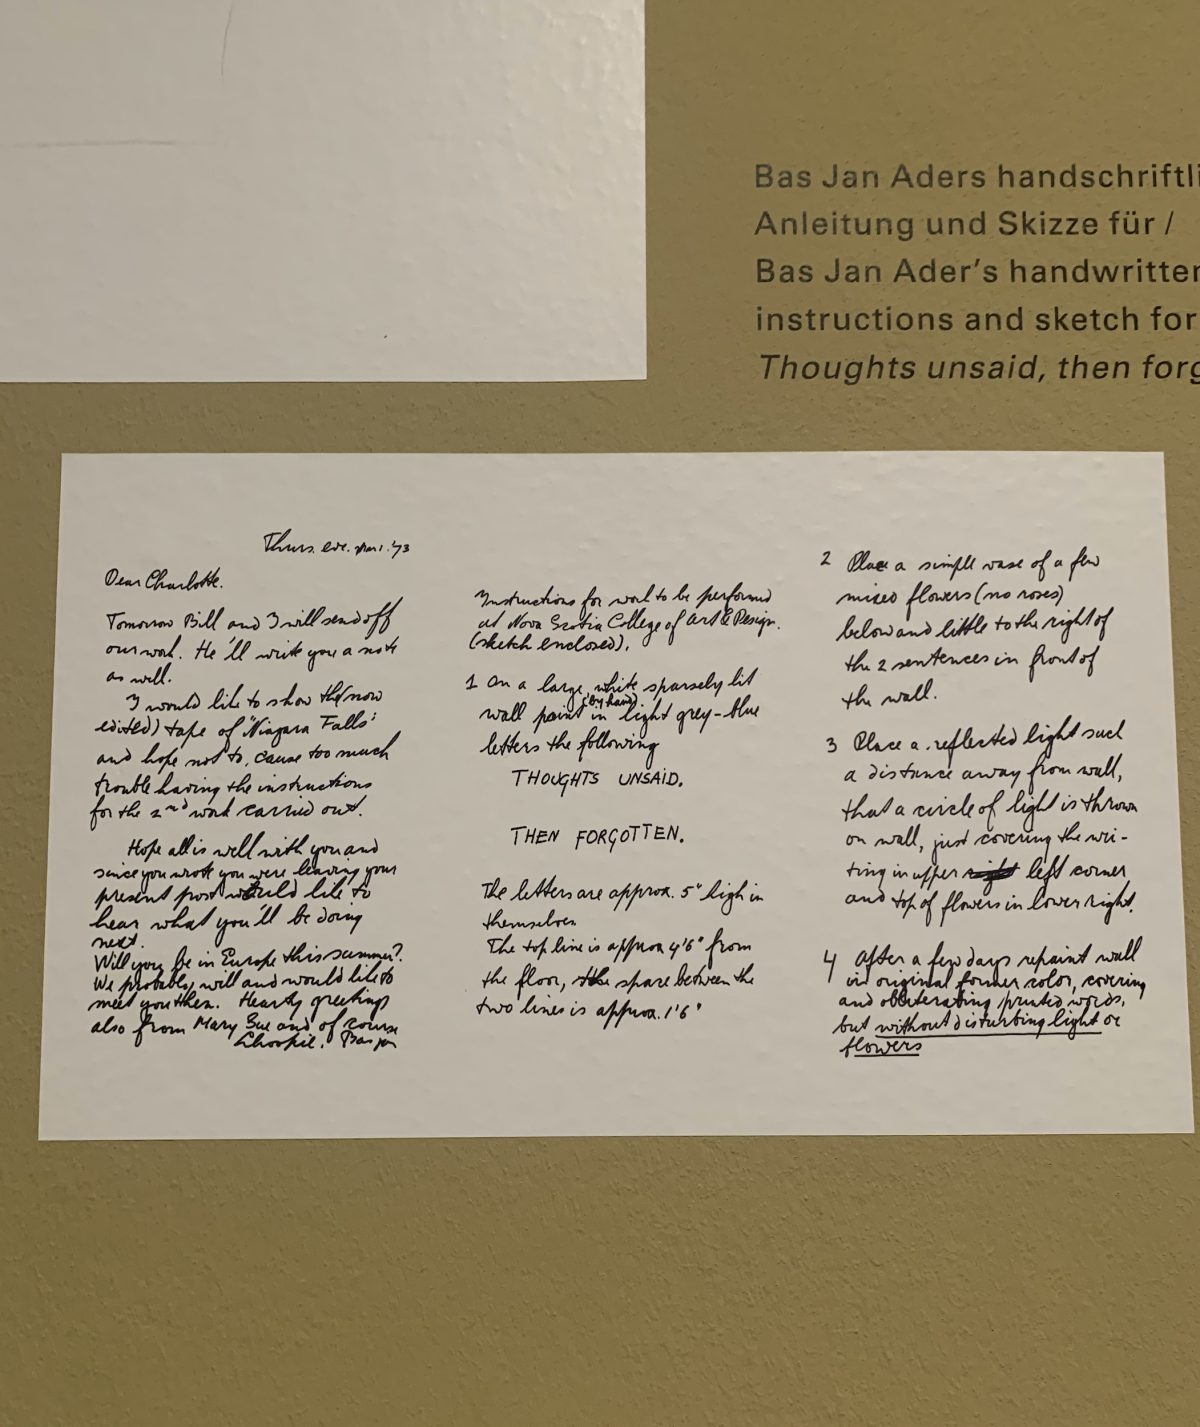 Bas Jan Aders handschriftli
Anleitung und Skizze für /
Bas Jan Ader's handwritten
instructions and sketch for
Thoughts unsaid, then forg
Thurs. eve. Mar 1. '73
Dear Charlotte.
Tomorrow Bill and I will send off
our work. He'll write you a note
as well.
I would like to show the (now
edited) tape of "Niagara Falls"
and hope not to, cause too much
trouble having the instructions
for the 2nd work carried out.
Hope all is well with you and
since you wrote you were leaving your
present post would like to
hear what you'll be doing
next.
Will you be in Europe this summer?
We probably, will and would like to
meet you then. Hearty greetings
also from Mary Sue and of course
Bas Jan
Instructions for work to be performed
at Nova Scotia College of Art & Design.
(sketch enclosed).
1 On a large, white sparsely lit
wall paint (by hand) in light grey-blue
letters the following
THOUGHTS UNSAID.
THEN FORGOTTEN.
The letters are approx. 5" high in
themselves
The top line is approx 4'6" from
the floor, the space between the
two lines is approx. 1'6"
2 Place a simple vase of a few
mixed flowers (no roses)
below and little to the right of
the 2 sentences in front of
the wall.
3 Place a reflected light such
a distance away from wall,
that a circle of light is thrown
on wall, just covering the wri-
ting in upper right left corner
and top of flowers in lower right.
4 After a few days repaint wall
in original former color, covering
and obliterating printed words,
but without disturbing light or
flowers